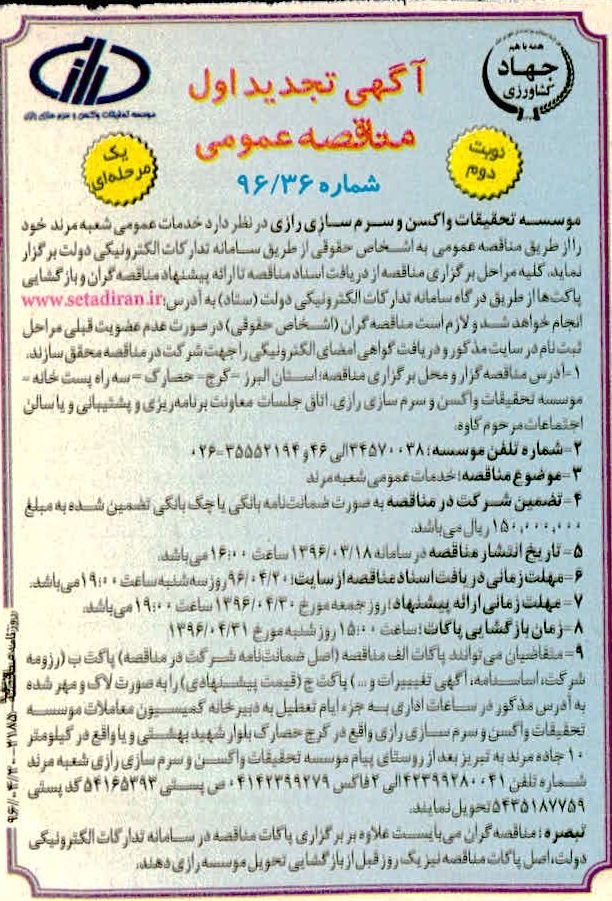 همه با هم
جهاد
کشاورزی
رازی
موسسه تحقیقات واکسن و سرم سازی رازی
آگهی تجدید اول
مناقصه عمومی
شماره ۹۶/۳۶
یک
مرحله‌ای
نوبت
دوم
موسسه تحقیقات واکسن و سرم سازی رازی در نظر دارد خدمات عمومی شعبه مرند خود
را از طریق مناقصه عمومی به اشخاص حقوقی از طریق سامانه تدارکات الکترونیکی دولت برگزار
نماید. کلیه مراحل برگزاری مناقصه از دریافت اسناد مناقصه تا ارائه پیشنهاد مناقصه گران و بازگشایی
پاکت‌ها از طریق درگاه سامانه تدارکات الکترونیکی دولت (ستاد) به آدرس: www.setadiran.ir
انجام خواهد شد و لازم است مناقصه گران (اشخاص حقوقی) در صورت عدم عضویت قبلی مراحل
ثبت نام در سایت مذکور و دریافت گواهی امضای الکترونیکی را جهت شرکت در مناقصه محقق سازند.
۱-آدرس مناقصه گزار و محل برگزاری مناقصه: استان البرز - کرج - حصارک - سه راه پست خانه -
موسسه تحقیقات واکسن و سرم سازی رازی، اتاق جلسات معاونت برنامه‌ریزی و پشتیبانی و یا سالن
اجتماعات مرحوم کاوه.
۲- شماره تلفن موسسه: ۳۴۵۷۰۰۳۸ الی ۴۶ و ۳۵۵۵۲۱۹۴-۰۲۶
۳- موضوع مناقصه: خدمات عمومی شعبه مرند
۴- تضمین شرکت در مناقصه به صورت ضمانت‌نامه بانکی یا چک بانکی تضمین شده به مبلغ
۱۵۰,۰۰۰,۰۰۰ ریال می‌باشد.
۵- تاریخ انتشار مناقصه در سامانه ۱۳۹۶/۰۳/۱۸ ساعت ۱۶:۰۰ می‌باشد.
۶- مهلت زمانی دریافت اسناد مناقصه از سایت: ۹۶/۰۴/۲۰ روز سه شنبه ساعت ۱۹:۰۰ می‌باشد.
۷- مهلت زمانی ارائه پیشنهاد: روز جمعه مورخ ۱۳۹۶/۰۴/۳۰ ساعت ۱۹:۰۰ می‌باشد.
۸- زمان بازگشایی پاکات: ساعت ۱۵:۰۰ روز شنبه مورخ ۱۳۹۶/۰۴/۳۱
۹- متقاضیان می‌توانند پاکات الف مناقصه (اصل ضمانت‌نامه شرکت در مناقصه) پاکت ب (رزومه
شرکت، اساسنامه، آگهی تغییرات و ...) پاکت ج (قیمت پیشنهادی) را به صورت لاک و مهر شده
به آدرس مذکور در ساعات اداری به جزء ایام تعطیل به دبیرخانه کمیسیون معاملات موسسه
تحقیقات واکسن و سرم سازی رازی واقع در کرج حصارک بلوار شهید بهشتی و یا واقع در کیلومتر
۱۰ جاده مرند به تبریز بعد از روستای پیام موسسه تحقیقات واکسن و سرم سازی رازی شعبه مرند
شماره تلفن ۰۴۱-۴۲۳۹۹۲۸۰ الی ۲ فاکس ۰۴۱۴۲۳۹۹۲۷۹ ص پستی ۵۴۱۶۵۳۹۳ کد پستی
۵۴۳۵۱۸۷۷۵۹ تحویل نمایند.
تبصره: مناقصه گران می‌بایست علاوه بر برگزاری پاکات مناقصه در سامانه تدارکات الکترونیکی
دولت، اصل پاکات مناقصه نیز یک روز قبل از بازگشایی تحویل موسسه رازی دهند.